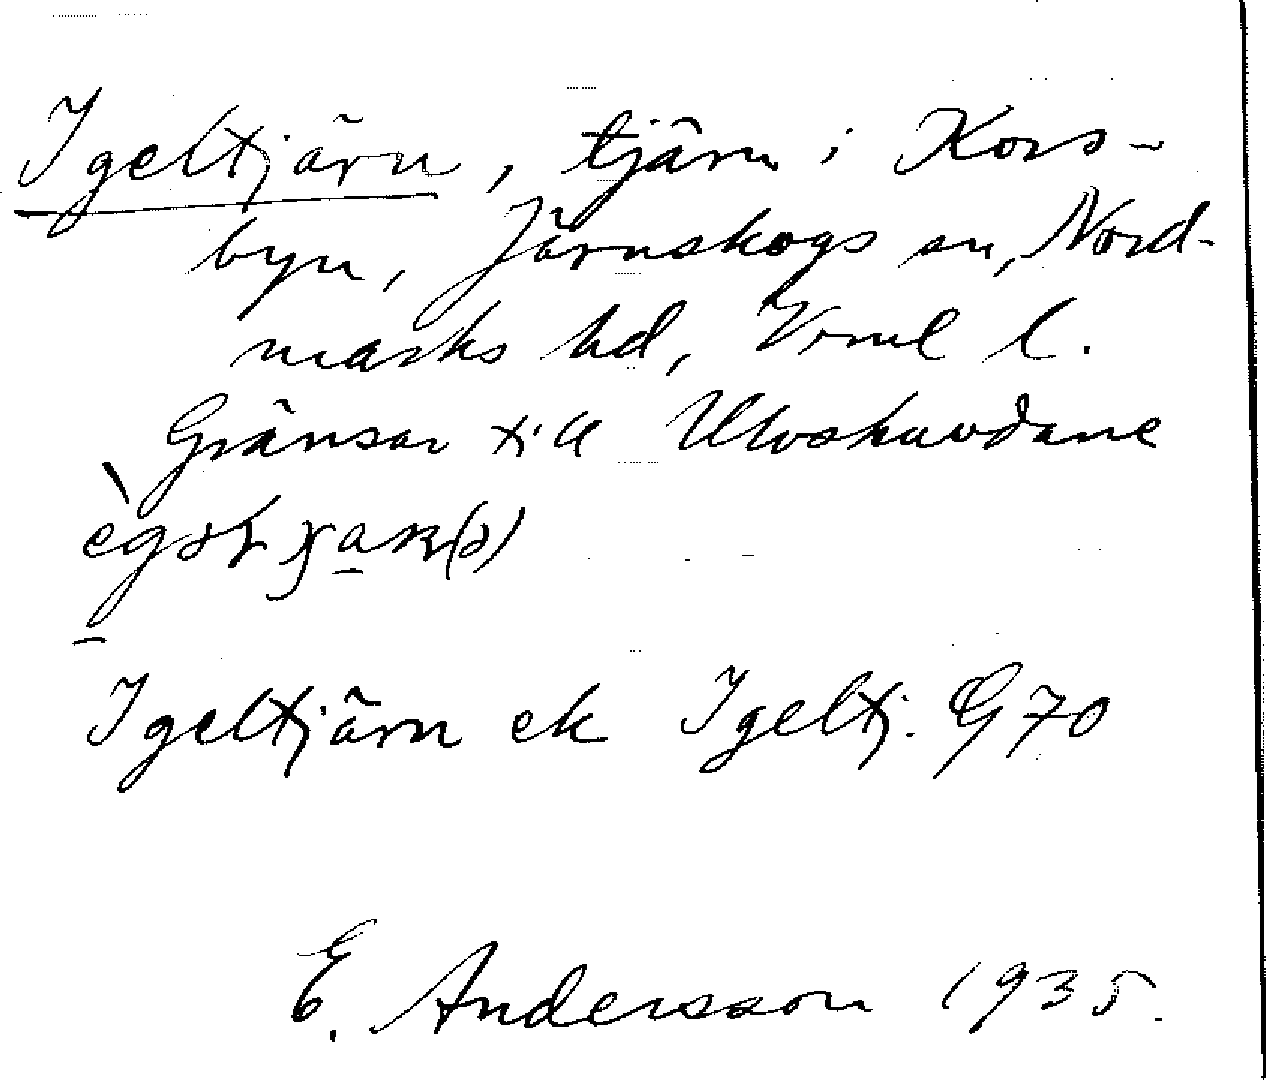 Igeltjärn, tjärn i Kors-
byn, Järnskogs sn, Nord-
marks hd, Vrml l.
Gränsar till Ulvskuvdane
Igeltjärn ek Igeltj. G 70
E. Andersson 1935.